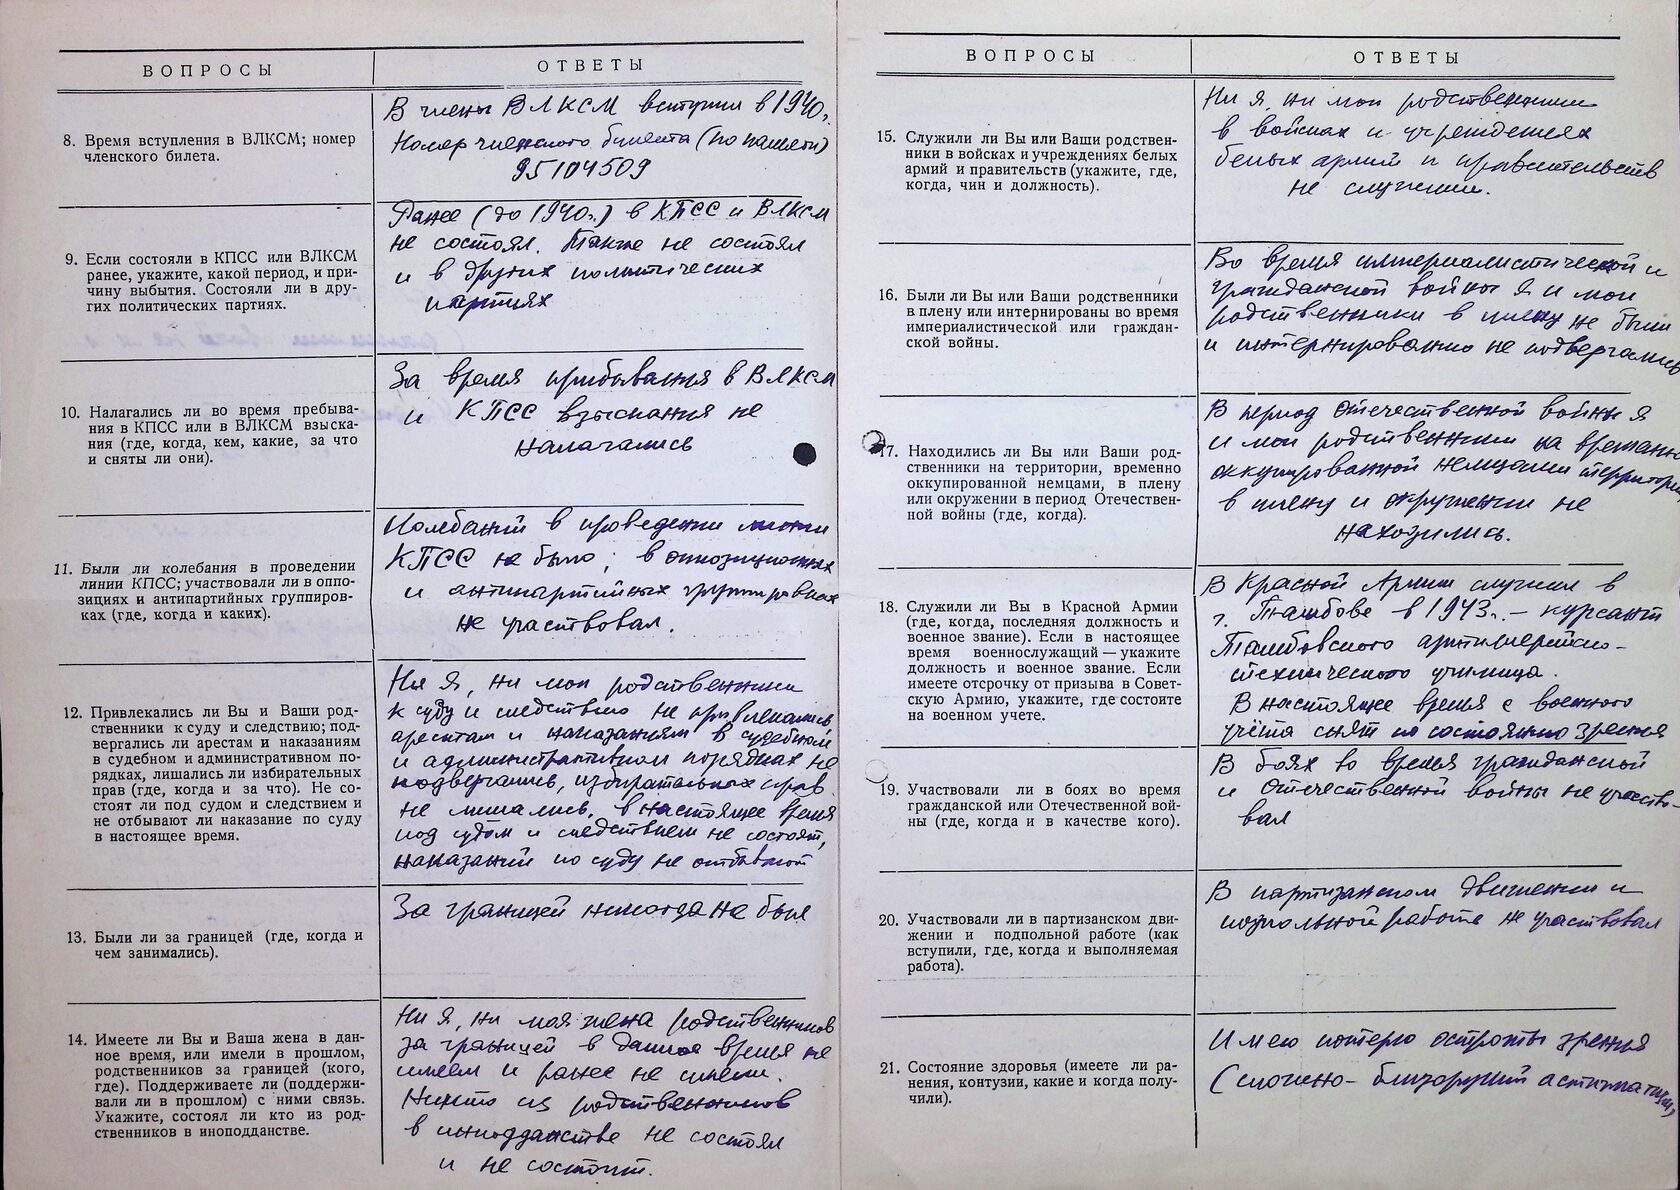 ВОПРОСЫ
ОТВЕТЫ
8. Время вступления в ВЛКСМ; номер
членского билета.
В члены ВЛКСМ вступил в 1940г.
Номер членского билета (по памяти)
95104509
9. Если состояли в КПСС или ВЛКСМ
ранее, укажите, какой период, и при-
чину выбытия. Состояли ли в дру-
гих политических партиях.
Ранее (до 1940г.) в КПСС и ВЛКСМ
не состоял. Также не состоял
и в других политических
партиях
10. Налагались ли во время пребыва-
ния в КПСС или в ВЛКСМ взыска-
ния (где, когда, кем, какие, за что
и сняты ли они).
За время прибывания в ВЛКСМ
и КПСС взыскания не
налагались
11. Были ли колебания в проведении
линии КПСС; участвовали ли в оппо-
зициях и антипартийных группиров-
ках (где, когда и каких).
Колебаний в проведении линии
КПСС не было; в оппозиционных
и антипартийных группировках
не участвовал.
12. Привлекались ли Вы и Ваши род-
ственники к суду и следствию; под-
вергались ли арестам и наказаниям
в судебном и административном по-
рядках, лишались ли избирательных
прав (где, когда и за что). Не со-
стоят ли под судом и следствием и
не отбывают ли наказание по суду
в настоящее время.
Ни я, ни мои родственники
к суду и следствию не привлекались
арестам и наказаниям в судебном
и административном порядках не
подвергались, избирательных прав
не лишались, в настоящее время
под судом и следствием не состоят,
наказаний по суду не отбывают
13. Были ли за границей (где, когда и
чем занимались).
За границей никогда не был
14. Имеете ли Вы и Ваша жена в дан-
ное время, или имели в прошлом,
родственников за границей (кого,
где). Поддерживаете ли (поддержи-
вали ли в прошлом) с ними связь.
Укажите, состоял ли кто из род-
ственников в иноподданстве.
Ни я, ни моя жена родственников
за границей в данное время не
имеем и ранее не имели.
Никто из родственников
в инподданстве не состоял
и не состоит.
ВОПРОСЫ
ОТВЕТЫ
15. Служили ли Вы или Ваши родствен-
ники в войсках и учреждениях белых
армий и правительств (укажите, где,
когда, чин и должность).
Ни я, ни мои родственники
в войсках и учреждениях
белых армий и правительств
не служили.
16. Были ли Вы или Ваши родственники
в плену или интернированы во время
империалистической или граждан-
ской войны.
Во время империалистической и
гражданской войны я и мои
родственники в плену не были
и интернированию не подвергались
17. Находились ли Вы или Ваши род-
ственники на территории, временно
оккупированной немцами, в плену
или окружении в период Отечествен-
ной войны (где, когда).
В период отечественной войны я
и мои родственники на временно
оккупированной немцами территории,
в плену и окружении не
находились.
18. Служили ли Вы в Красной Армии
(где, когда, последняя должность и
военное звание). Если в настоящее
время военнослужащий — укажите
должность и военное звание. Если
имеете отсрочку от призыва в Совет-
скую Армию, укажите, где состоите
на военном учете.
В Красной Армии служил в
г. Тамбове в 1943г. – курсант
Тамбовского артиллерийско-
технического училища.
В настоящее время с военного
учёта снят по состоянию зрения
19. Участвовали ли в боях во время
гражданской или Отечественной вой-
ны (где, когда и в качестве кого).
В боях во время гражданской
и Отечественной войны не участво-
вал
20. Участвовали ли в партизанском дви-
жении и подпольной работе (как
вступили, где, когда и выполняемая
работа).
В партизанском движении и
подпольной работе не участвовал
21. Состояние здоровья (имеете ли ра-
нения, контузии, какие и когда полу-
чили).
Имею потерю остроты зрения
(сложно-близорукий астигматизм)